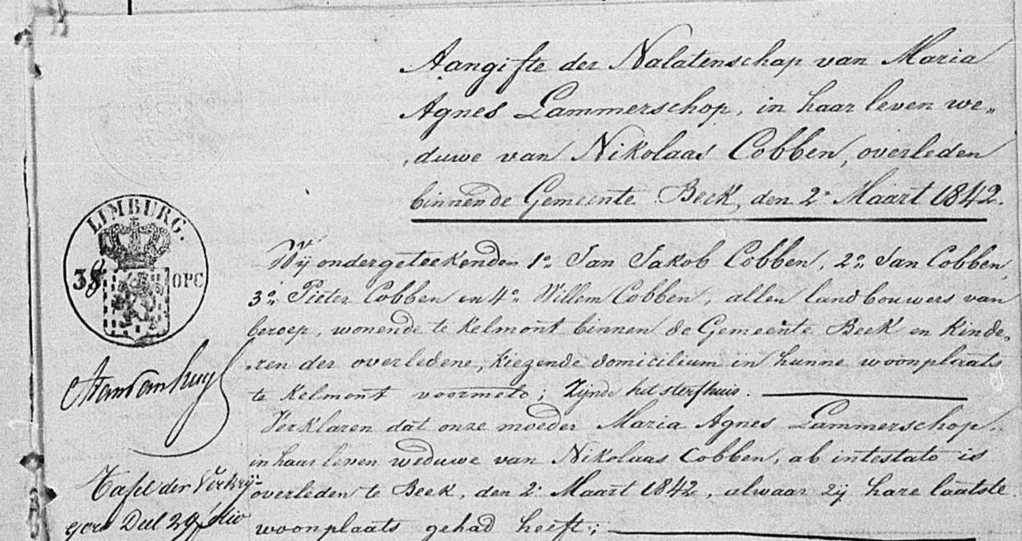 Aangifte der Nalatenschap van Maria
Agnes Lammerschop, in haar leven we„
„duwe van Nikolaas Cobben, overleden
binnen de Gemeente Beek, den 2n Maart 1842.
LIMBURG.
38 OPC
Wij ondergeteekenden 1o Jan Jakob Cobben, 2o Jan Cobben,
3o Pieter Cobben en 4o Willem Cobben, allen landbouwers van
beroep, wonende te Kelmont binnen de Gemeente Beek en kinde„
„ren der overledene, kiezende domicilium in hunne woonplaats
te Kelmont voormeld; zijnde het sterfhuis.
Verklaren dat onze moeder Maria Agnes Lammerschop,
in haar leven weduwe van Nikolaas Cobben, ab intestato is
overleden te Beek, den 2n Maart 1842, alwaar zij hare laatste
woonplaats gehad heeft;
Tafel der Verkrij-
gers Deel 29 folio